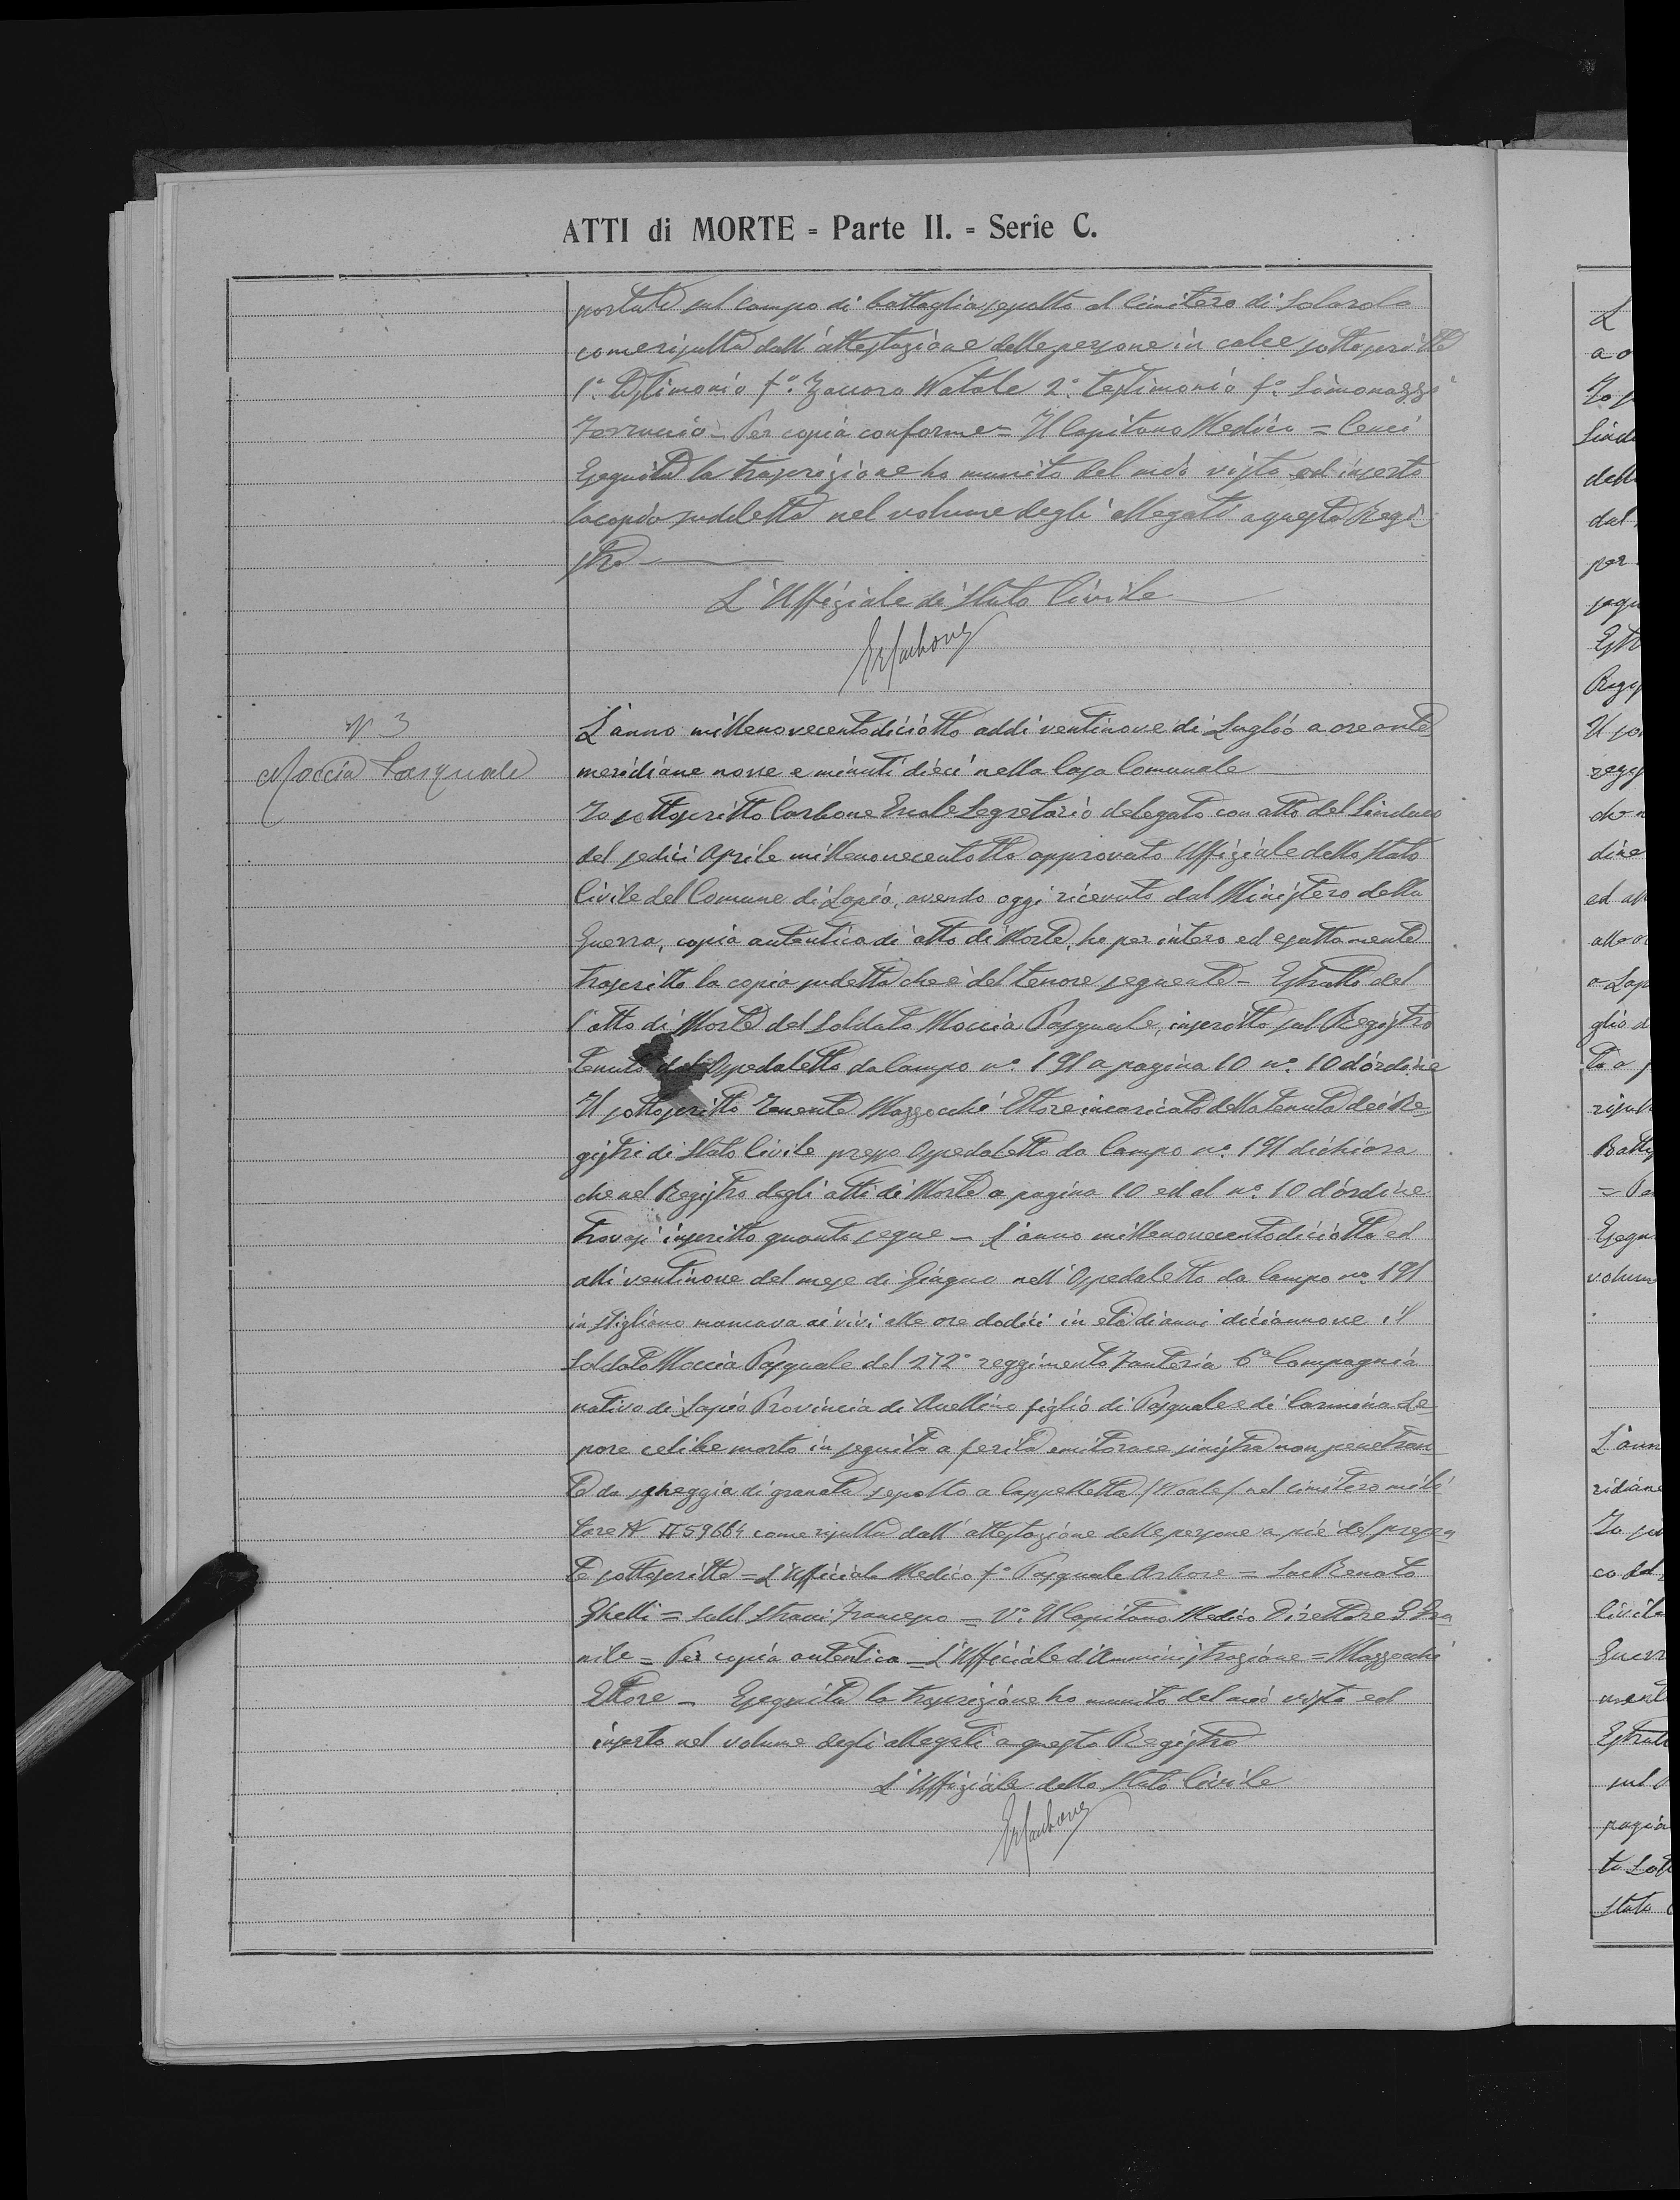 ATTI di MORTE = Parte II. = Serie C.
portate sul campo di battaglia sepolto al Cimitero di Solarolo
come risulta dall'attestazione delle persone in calce sottoscritte
1° Testimonio f° Zaccara Natale 2° Testimonio f° Simonazzi
Ferruccio = Per copia conforme = Il Capitano Medico = Cenci
Eseguita la trascrizione ho munito del mio visto ed inserto
la copia suddetta nel volume degli allegati a questo Regi
stro
L'Uffiziale di Stato Civile
N° 3
Moccia Pasquale
L'anno millenovecentodiciotto addi ventinove di Luglio a ore ante
meridiane nove e minuti dieci nella Casa Comunale
Io sottoscritto Carbone Segretario delegato con atto del Sindaco
del sedici Aprile millenovecentotto approvato Uffiziale dello Stato
Civile del Comune di Lapio, avendo oggi ricevuto dal Ministero della
Guerra, copia autentica di atto di Morte, ho per intero ed esattamente
trascritto la copia sudetta che è del tenore seguente - Estratto del
l'atto di Morte del Soldato Moccia Pasquale, inscritto sul Registro
tenuto dal Ospedaletto da Campo n° 191 a pagina 10 n° 10 d'ordine
Il sottoscritto Tenente Mazzocchi Ettore incaricato della tenuta dei Re
gistri di Stato Civile presso Ospedaletto da Campo n° 191 dichiara
che nel Registro degli atti di Morte a pagina 10 ed al n° 10 d'ordine
trovasi inscritto quanto segue - L'anno millenovecentodiciotto ed
alli ventinove del mese di Giugno nell'Ospedaletto da Campo n° 191
in Stigliano mancava ai vivi alle ore dodici in età di anni diciannove il
Soldato Moccia Pasquale del 272° reggimento Fanteria 6a Compagnia
nativo di Lapio Provincia di Avellino figlio di Pasquale e di Carmina Le
pore celibe morto in seguito a ferita emitorace sinistra non penetran
te da scheggia di granata sepolto a Cappelletta (Noale) nel cimitero mili
tare come risulta dall'attestazione delle persone a piè del presen
te sottoscritte = L'Ufficiale Medico f° Pasquale Arbore =
Ghelli = Sold Francesco = V° Il Capitano Medico Direttore
nile = Per copia autentica = L'Ufficiale d'Amministrazione = Mazzocchi
Ettore - Eseguita la trascrizione ho munito del mio visto ed
inserto nel volume degli allegati a questo Registro
L'Uffiziale dello Stato Civile